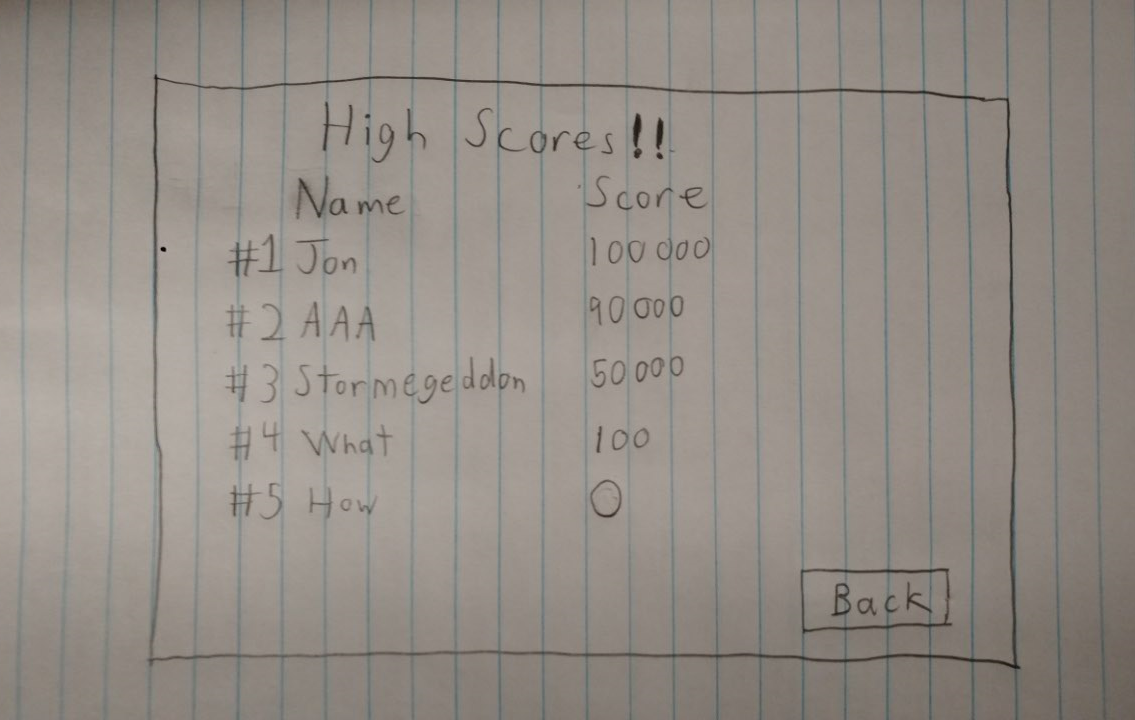 High Scores!!
Name Score
#1 Jon 100 000
#2 AAA 90 000
#3 Stormegeddon 50 000
#4 What 100
#5 How 0
Back